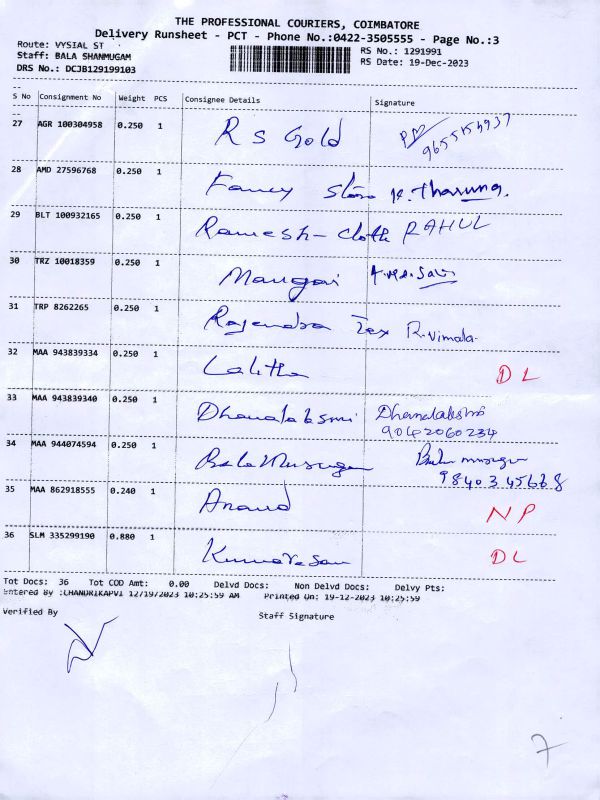 THE PROFESSIONAL COURIERS, COIMBATORE
Delivery Runsheet - PCT - Phone No.:0422-3505555 - Page No.:3
Route: VYSIAL ST
Staff: BALA SHANMUGAM
DRS No.: DCJB129199103
RS No.: 1291991
RS Date: 19-Dec-2023
S No Consignment No Weight PCS Consignee Details Signature
27 AGR 100304958 0.250 1 R S Gold
28 AMD 27596768 0.250 1 Fancy Store K. Tharung.
29 BLT 100932165 0.250 1 Ramesh - Cloth RAHUL
30 TRZ 10018359 0.250 1 Mangai
31 TRP 8262265 0.250 1 Rajendra Tex R. Vimala.
32 MAA 943839334 0.250 1 Lalitha DL
33 MAA 943839340 0.250 1 Dhanalaksmi Dhanalakshmi
9042060234
34 MAA 944074594 0.250 1 BalaMurugan Bala murugan
9840345668
35 MAA 862918555 0.240 1 Anand NP
36 SLM 335299190 0.880 1 Kumaresan DL
Tot Docs: 36 Tot COD Amt: 0.00 Delvd Docs: Non Delvd Docs: Delvy Pts:
Entered By :CHANDRIKAPVI 12/19/2023 10:25:59 AM Printed On: 19-12-2023 10:25:59
Verified By Staff Signature
7